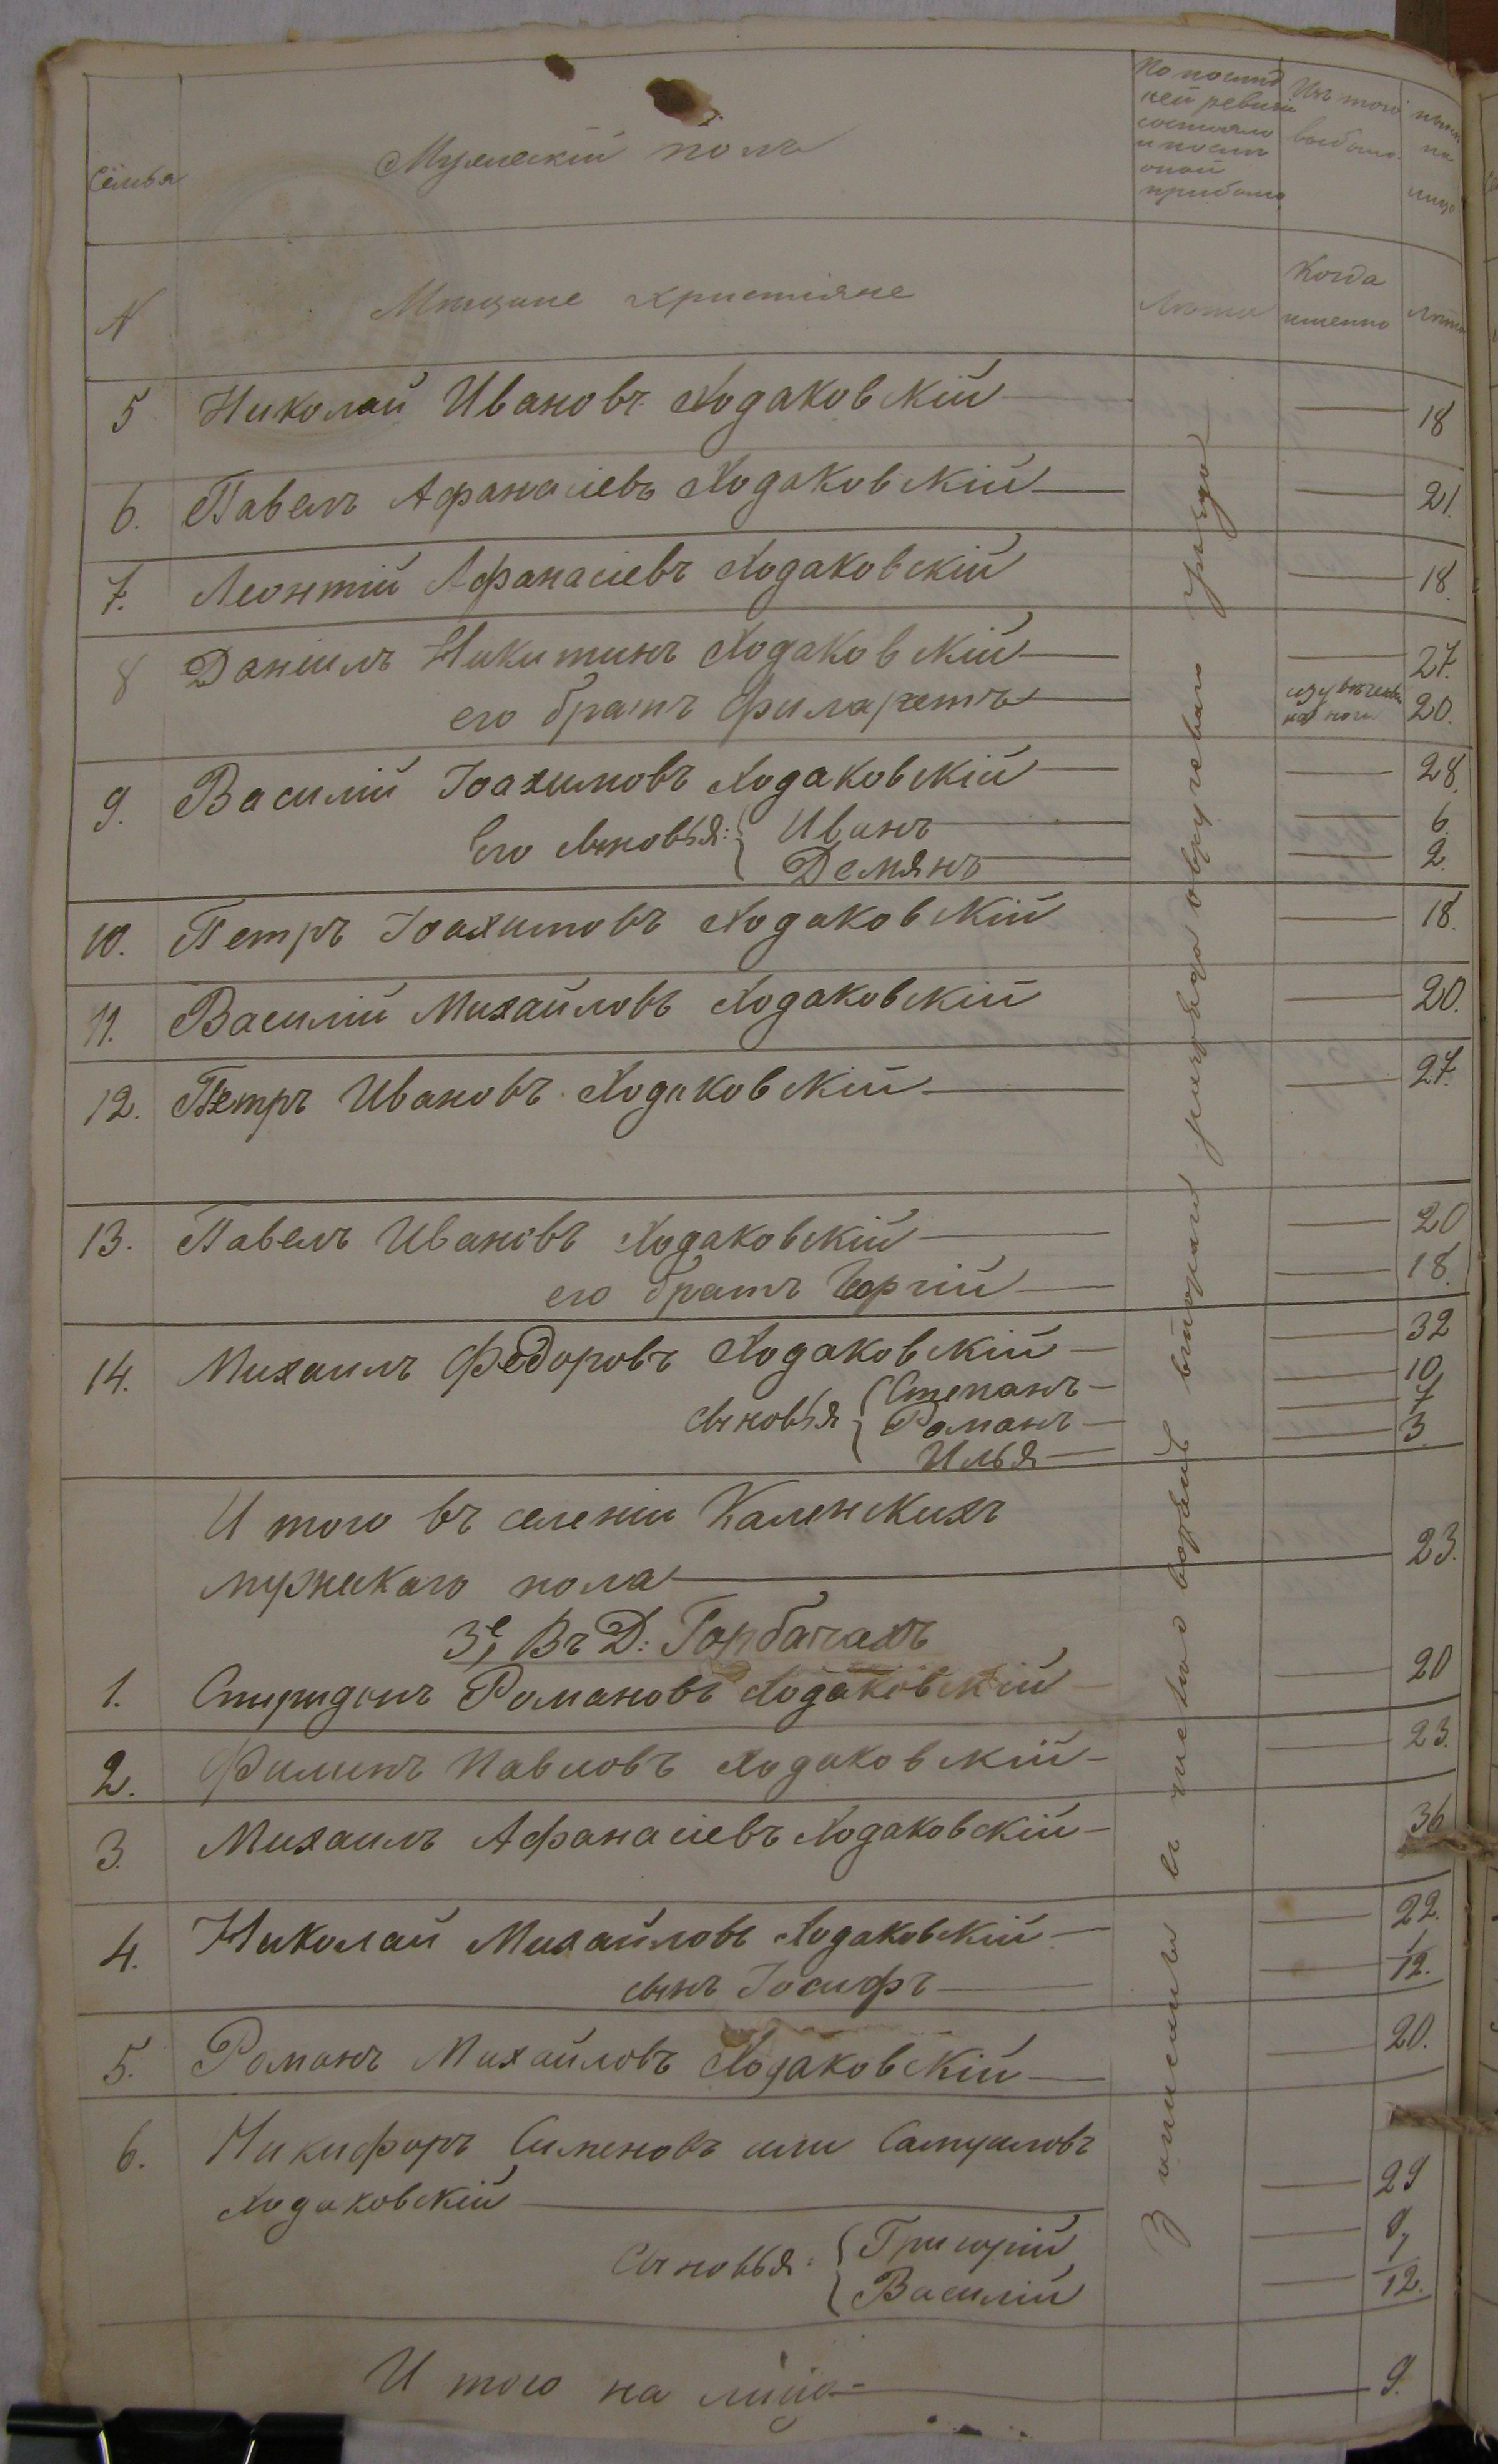 Семья
Мужескій полъ
По послѣд
ней ревизіи
состояло
и послѣ
оной
прибыло
Изъ того
выбыло
нынѣ
на
лицо
N
Мѣщане христіяне
Лѣта
Когда
именно
Лѣта
5 Николай Ивановъ Ходаковскій 18
6. Павелъ Афанасіевъ Ходаковскій 21.
7. Леонтій Афанасіевъ Ходаковскій 18.
8 Даніилъ Никитинъ Ходаковскій 27.
его братъ Филаретъ 20.
9. Василій Іоахимовъ Ходаковскій 28.
Его сыновья: Иванъ 6.
Демянъ 2.
10. Петръ Іоахимовъ Ходаковскій 18.
11. Василій Михайловъ Ходаковскій 20.
12. Петръ Ивановъ Ходаковскій 27.
13. Павелъ Ивановъ Ходаковскій 20
его братъ Георгій 18.
14. Михаилъ Федоровъ Ходаковскій 32
сыновья Степанъ 10
Романъ 7
Илья 3
И того въ селеніи Каленскихъ
мужескаго пола 23.
3е, Въ Д: Горбачахъ
1. Спиридонъ Романовъ Ходаковскій 20
2. Филипъ Павловъ Ходаковскій 23.
3. Михаилъ Афанасіевъ Ходаковскій 36
4. Николай Михайловъ Ходаковскій 22.
сынъ Іосифъ 1/12.
5. Романъ Михайловъ Ходаковскій 20.
6. Никифоръ Сименовъ или Самуиловъ
Ходаковскій 29
Сыновья: Григорій 8,
Василій 1/12.
И того на лицо 9.
Записаны въ число дворянъ втораго разряда овручскаго уѣзда